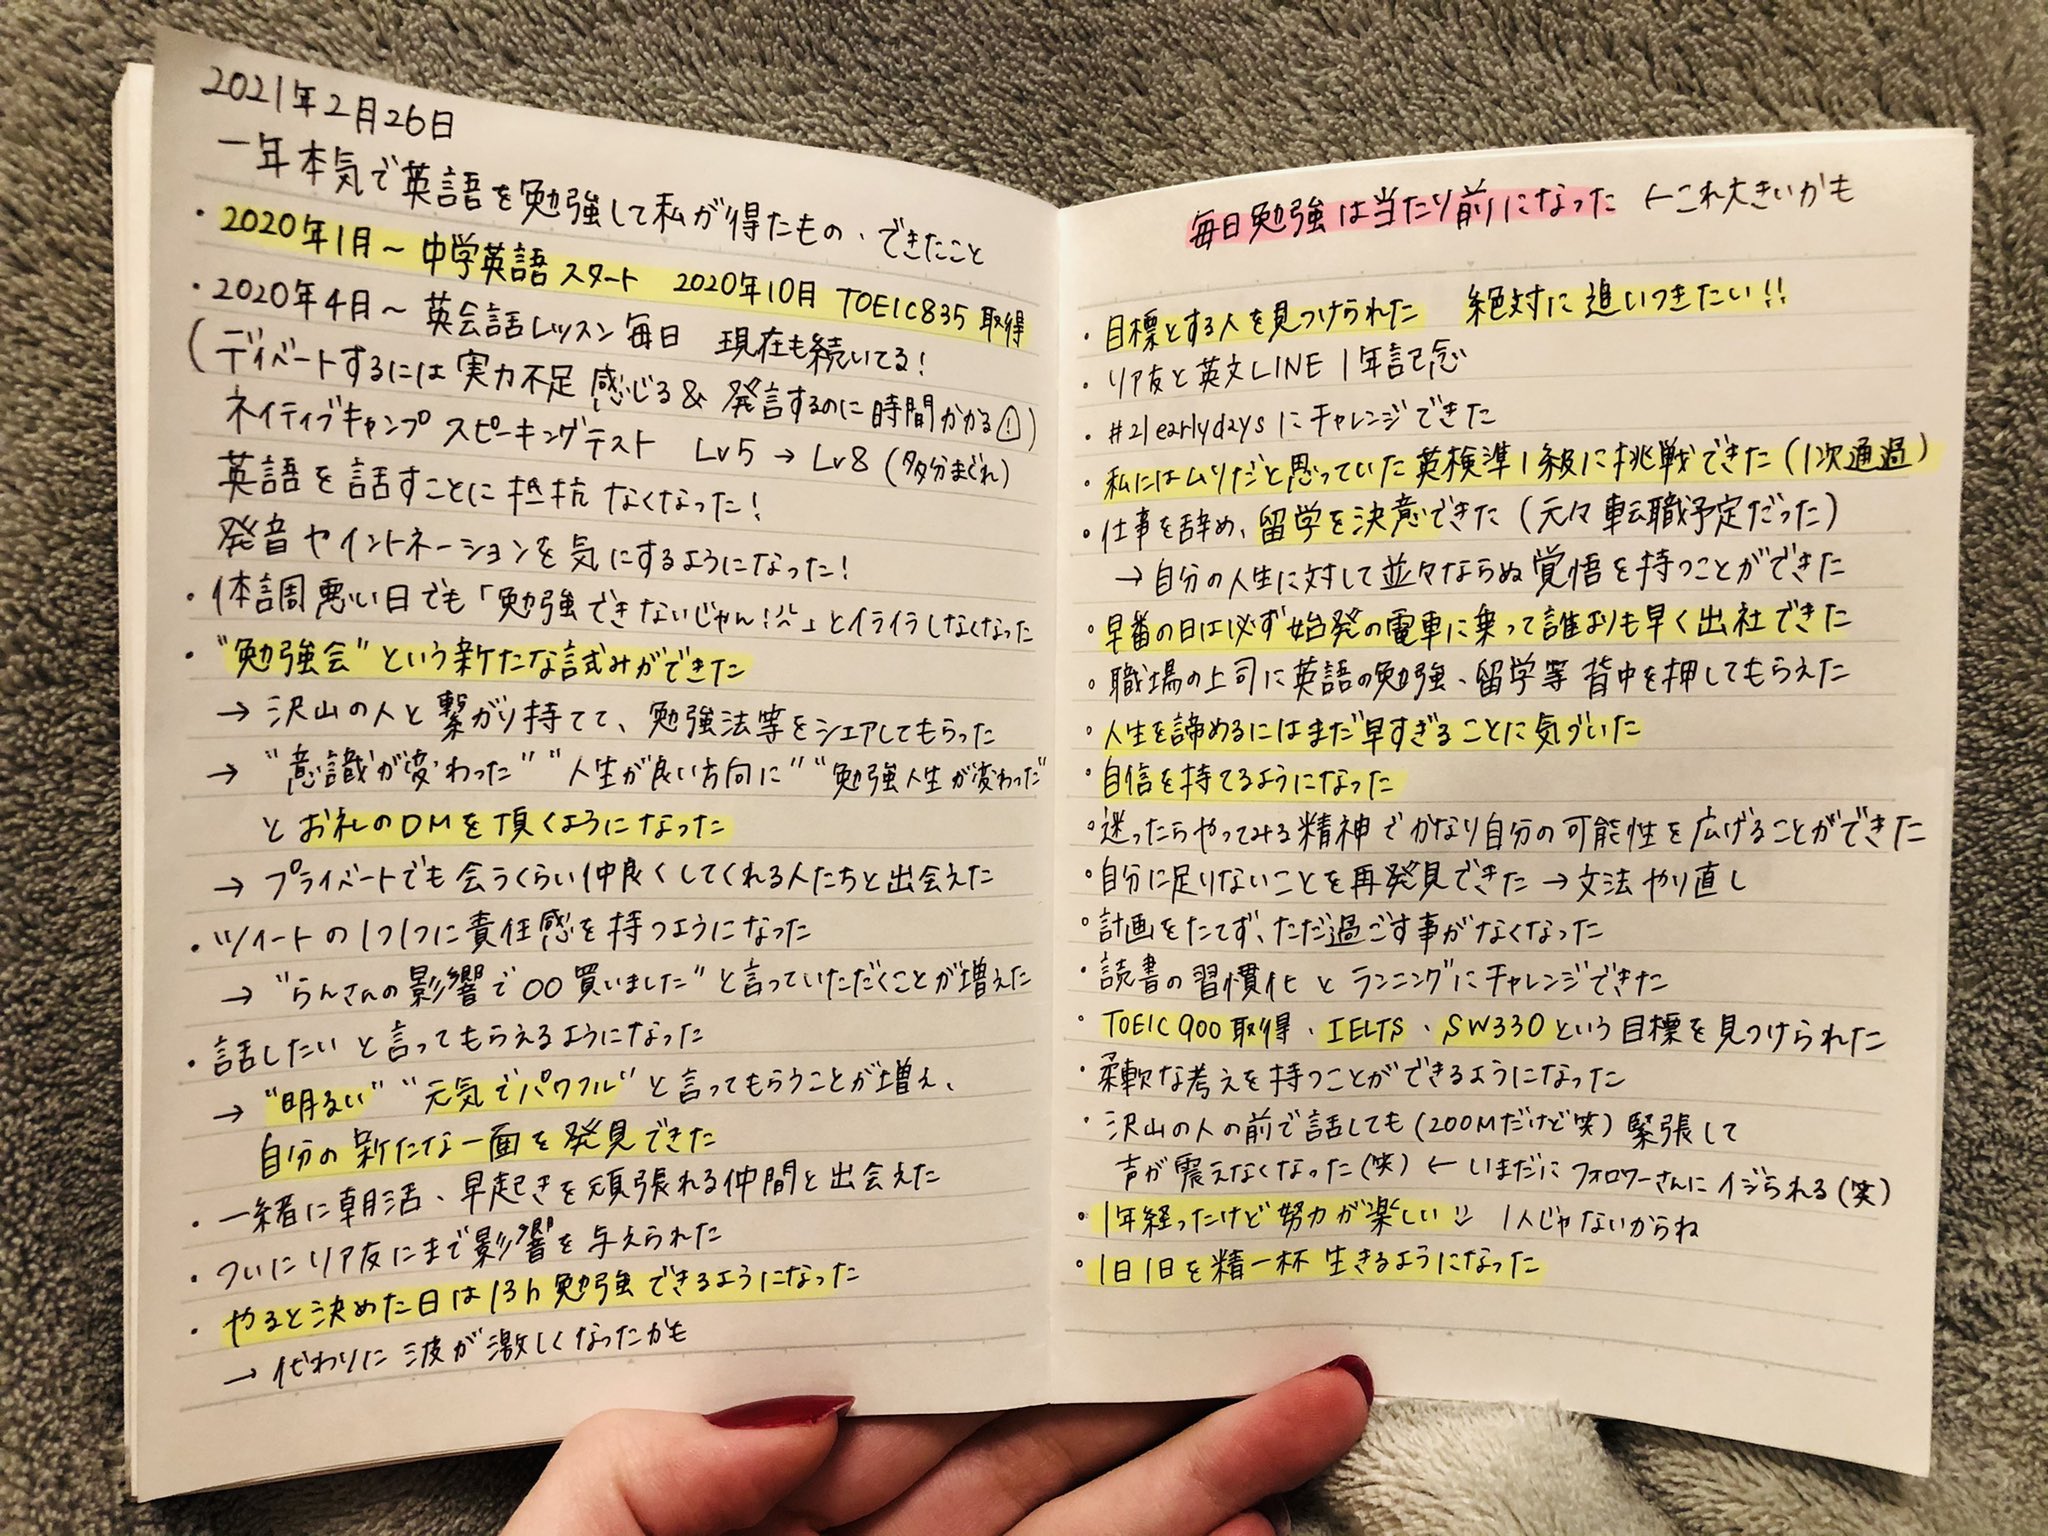 2021年2月26日
一年本気で英語を勉強して私が得たもの、できたこと
・2020年1月〜中学英語スタート 2020年10月 TOEIC835取得
・2020年4月〜英会話レッスン毎日 現在も続いてる!
(ディベートするには実力不足感じる&発言するのに時間かかる!)
ネイティブキャンプ スピーキングテスト Lv5→Lv8(多分まぐれ)
英語を話すことに抵抗なくなった!
発音やイントネーションを気にするようになった!
・体調悪い日でも「勉強できないじゃん!」とイライラしなくなった
・"勉強会"という新たな試みができた
→沢山の人と繋がり持てて、勉強法等をシェアしてもらった
→"意識が変わった""人生が良い方向に""勉強人生が変わった"
とお礼のDMを頂くようになった
→プライベートでも会うくらい仲良くしてくれる人たちと出会えた
・ツイートの1つ1つに責任感を持つようになった
→"らんさんの影響で○○買いました"と言っていただくことが増えた
・話したいと言ってもらえるようになった
→"明るい""元気でパワフル"と言ってもらうことが増え、
自分の新たな一面を発見できた
・一緒に朝活、早起きを頑張れる仲間と出会えた
・ついにリア友にまで影響を与えられた
・やると決めた日は13h勉強できるようになった
→代わりに波が激しくなったかも
毎日勉強は当たり前になった ←これ大きいかも
・目標とする人を見つけられた 絶対に追いつきたい!!
・リア友と英文LINE 1年記念
・#21earlydaysにチャレンジできた
・私にはムリだと思っていた英検準1級に挑戦できた(1次通過)
・仕事を辞め、留学を決意できた(元々転職予定だった)
→自分の人生に対して並々ならぬ覚悟を持つことができた
・早番の日は必ず始発の電車に乗って誰よりも早く出社できた
・職場の上司に英語の勉強、留学等背中を押してもらえた
・人生を諦めるにはまだ早すぎることに気づいた
・自信を持てるようになった
・迷ったらやってみる精神でかなり自分の可能性を広げることができた
・自分に足りないことを再発見できた→文法やり直し
・計画をたてず、ただ過ごす事がなくなった
・読書の習慣化とランニングにチャレンジできた
・TOEIC900取得・IELTS・SW330という目標を見つけられた
・柔軟な考えを持つことができるようになった
・沢山の人の前で話しても(ZOOMだけど笑)緊張して
声が震えなくなった(笑)←いまだにフォロワーさんにイジられる(笑)
・1年経ったけど努力が楽しい 1人じゃないからね
・1日1日を精一杯生きるようになった